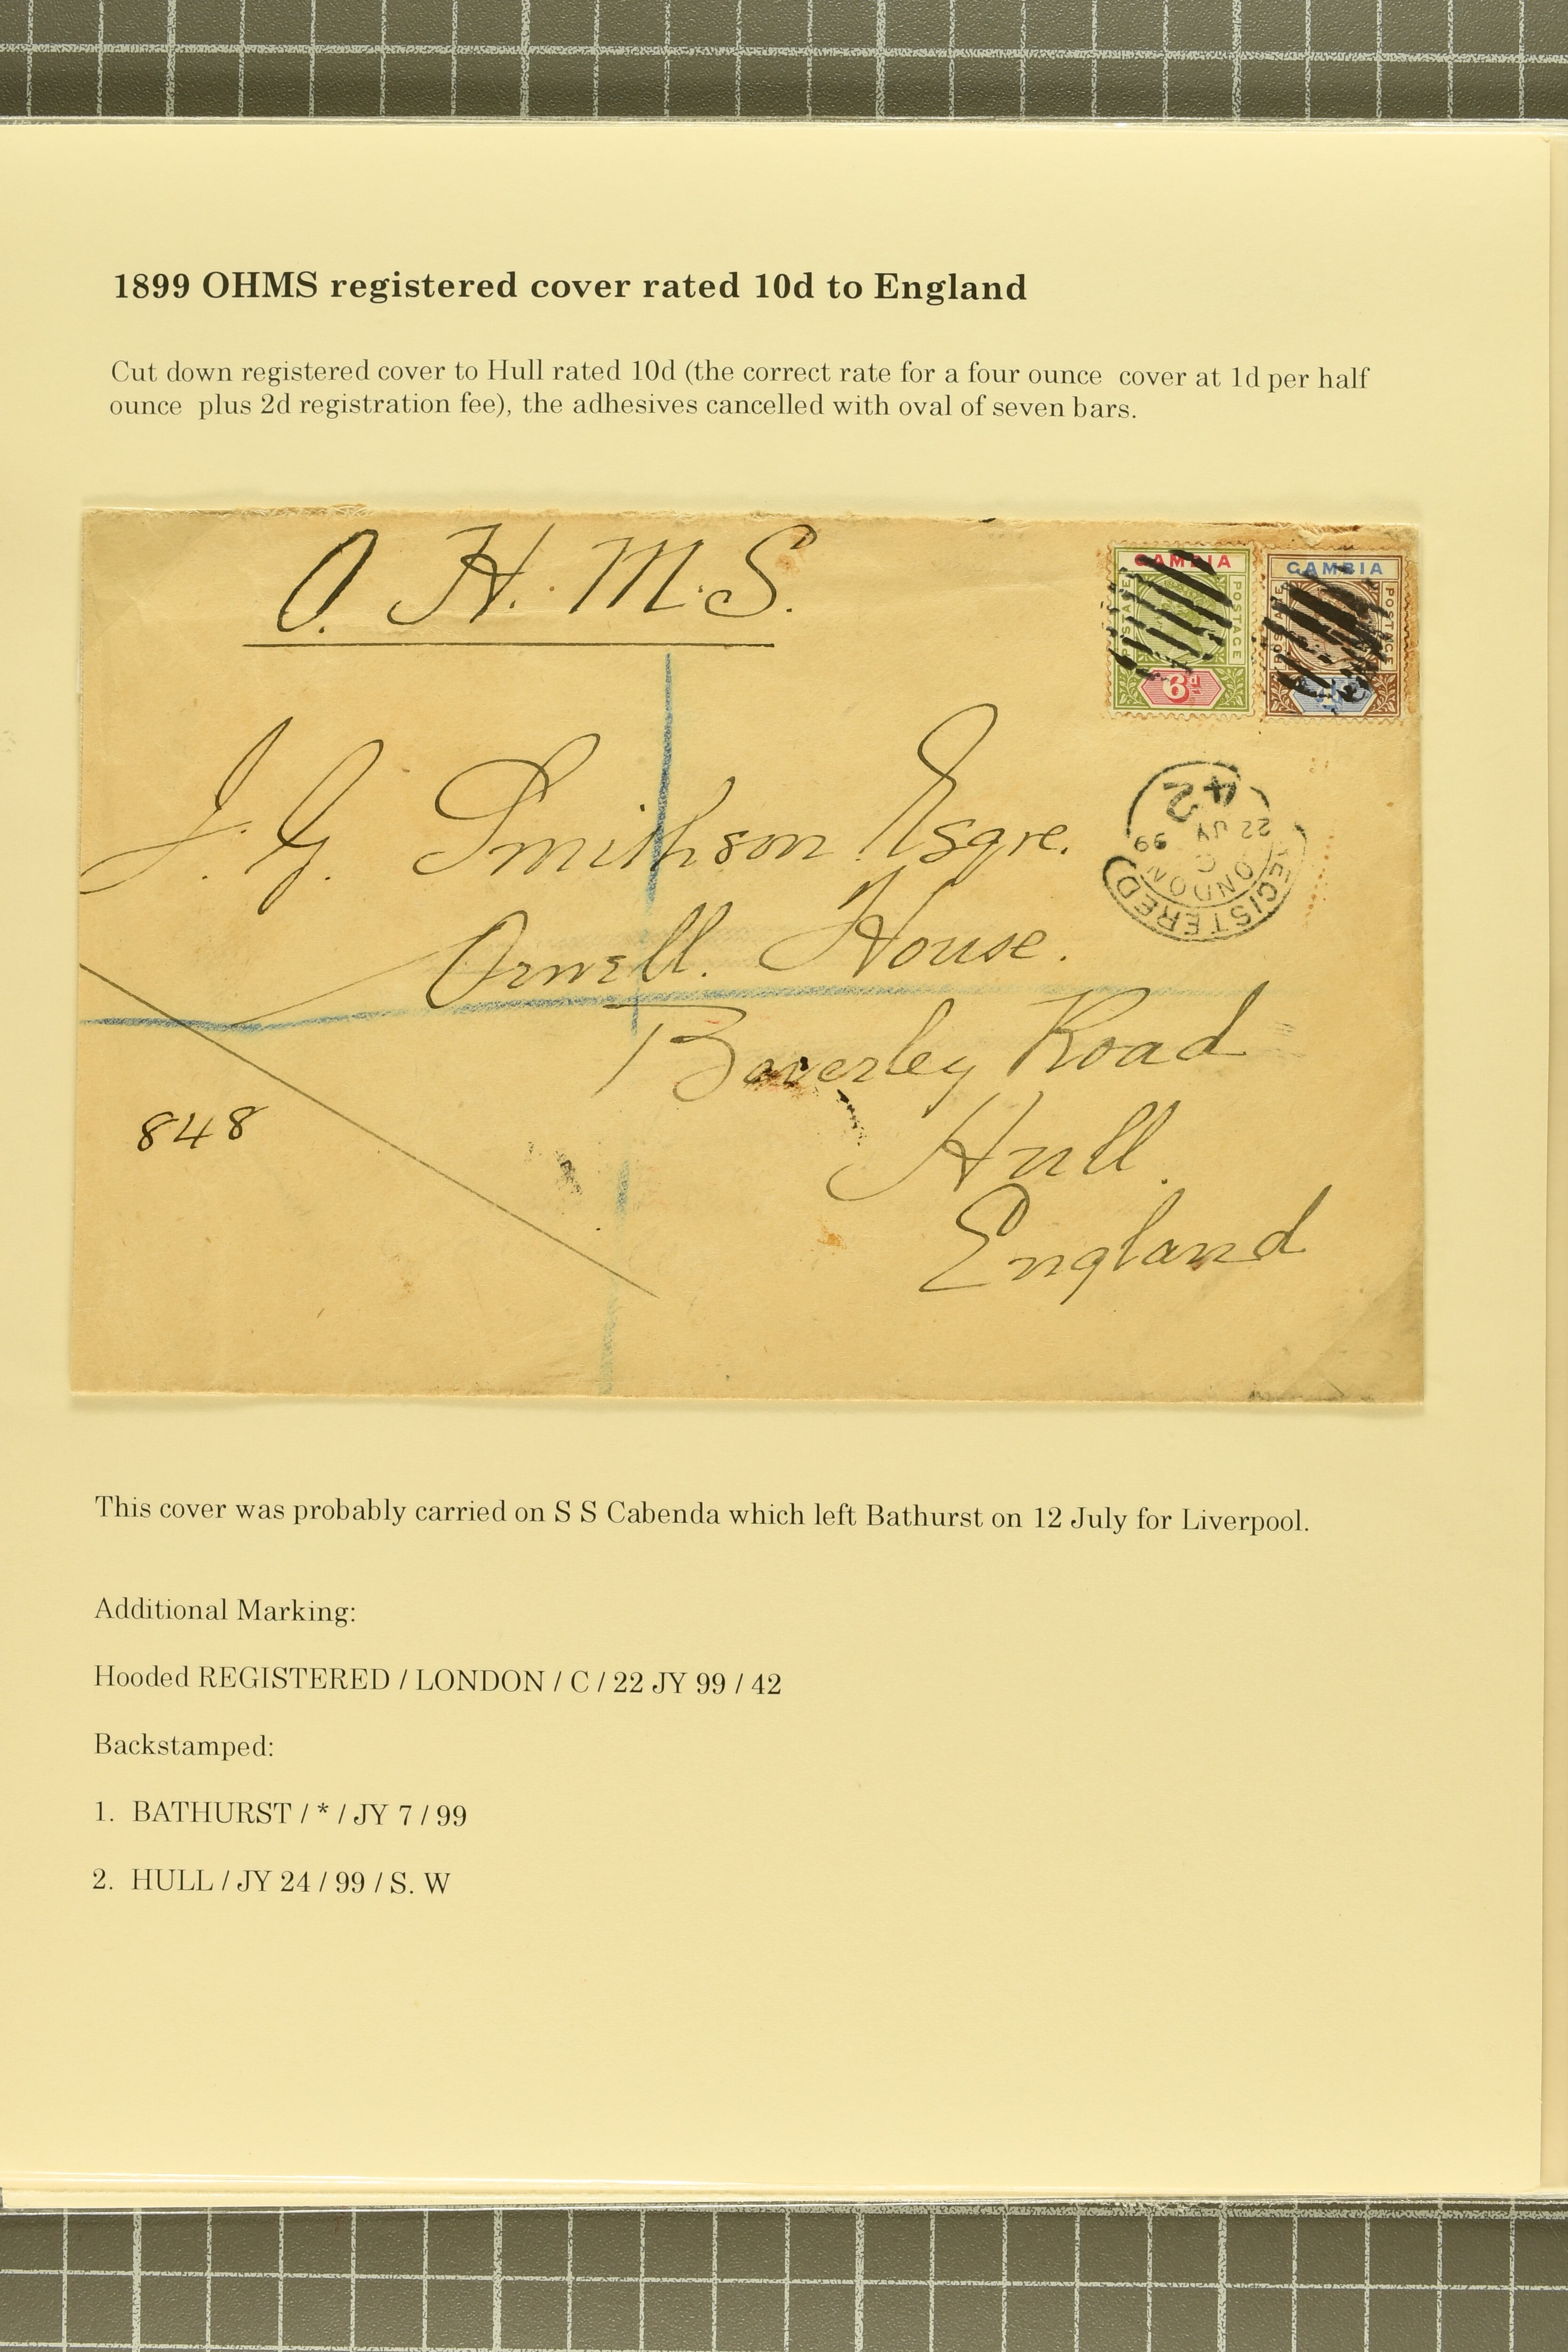 1899 OHMS registered cover rated 10d to England
Cut down registered cover to Hull rated 10d (the correct rate for a four ounce cover at 1d per half
ounce plus 2d registration fee), the adhesives cancelled with oval of seven bars.
O. H. M. S.
GAMBIA
POSTAGE
POSTAGE
6d
GAMBIA
POSTAGE
POSTAGE
J. G. Smithson Esqre.
Orwell. House.
Beverley Road
Hull.
England
848
REGISTERED
LONDON
C
22 JY 99
42
This cover was probably carried on S S Cabenda which left Bathurst on 12 July for Liverpool.
Additional Marking:
Hooded REGISTERED / LONDON / C / 22 JY 99 / 42
Backstamped:
1. BATHURST / * / JY 7 / 99
2. HULL / JY 24 / 99 / S. W